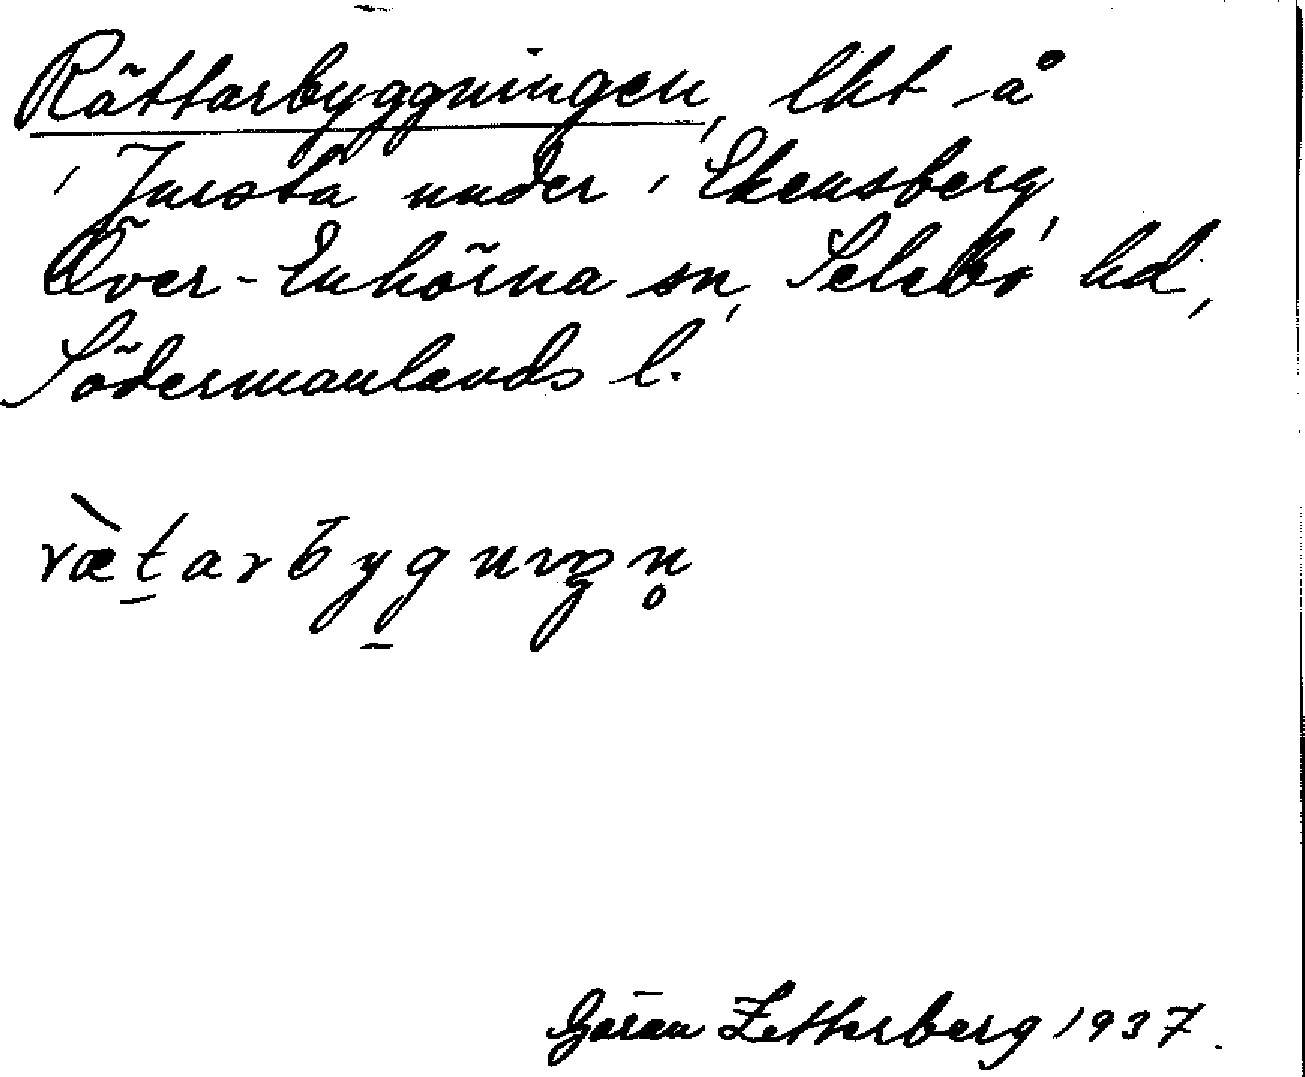 Rättarbyggningen, lht å
' Jursta under ' Ekensberg,
Över-Enhörna sn, Selebo hd,
Södermanlands l.
Göran Zetterberg 1937.